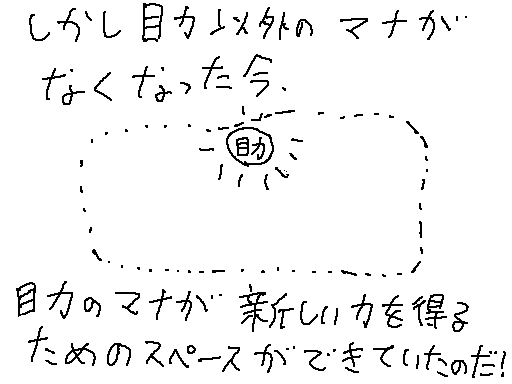 しかし目力以外のマナが
なくなった今、
目力
目力のマナが新しい力を得る
ためのスペースができていたのだ!